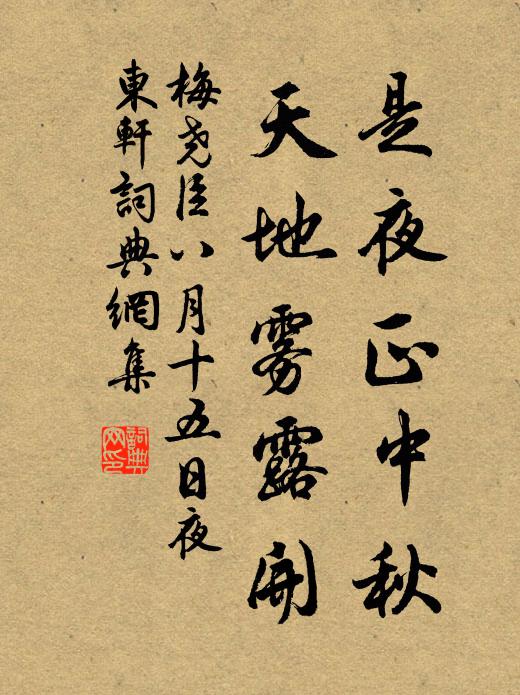 是夜正中秋
天地雾露开
梅尧臣八月十五日夜
東軒詞典網集
詞典
网印